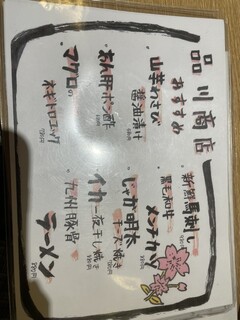 品川商店
おすすめ
新鮮馬刺し
黒毛和牛
メンチカツ
山芋わさび
醤油漬け
じゃが明太
チーズ焼き
あん肝ポン酢
イカ一夜干し焼き
マグロの
ネギトロユッケ
九州豚骨
ラーメン